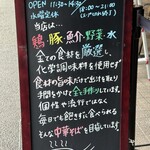 OPEN 11:30~14:30
18:00~21:00
水曜定休
当店は…
鶏・豚・魚介・野菜・水
全ての食材を厳選。
化学調味料を使用せず
食材の旨味だけで出汁を取り
手間をかけ全て手作りしています。
個性や流行ではなく
毎日でも飽きずに食べられる
そんな中華そばを目指しています!